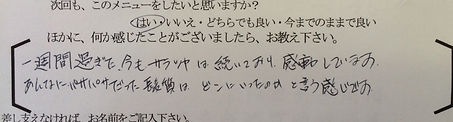 次回も、このメニューをしたいと思いますか?
はい・いいえ・どちらでも良い・今までのままで良い
ほかに、何か感じたことがございましたら、お教え下さい。
一週間過ぎた今もサラツヤは続いており、感動しています。
あんなにパサパサだった髪質は どこにいったのか と言う感じです。
差し支えなければ、お名前をご記入下さい。